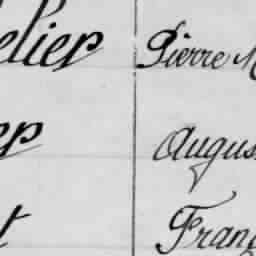 elier Pierre M
er Augus
t Franç